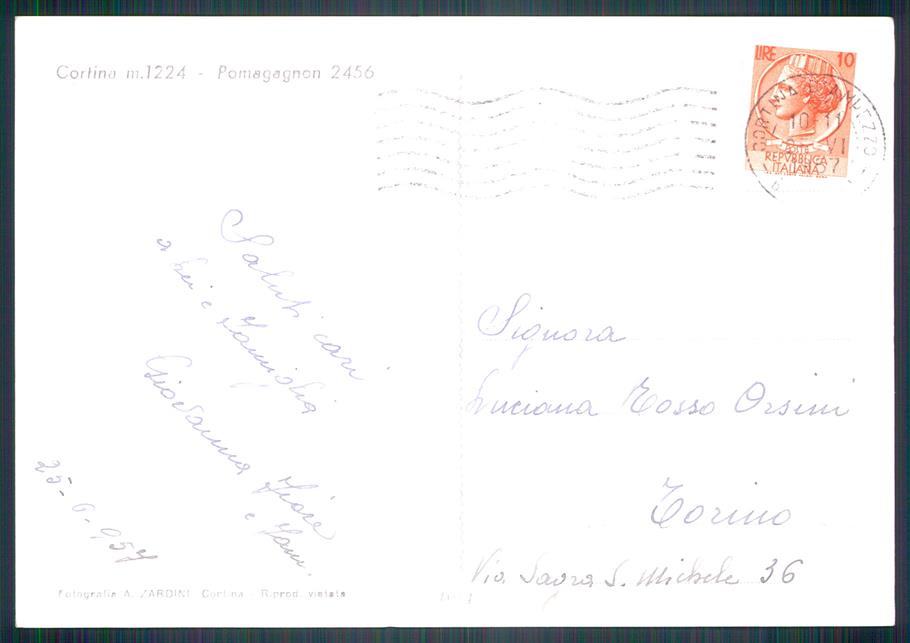 Cortina m.1224 - Pomagagnon 2456
LIRE 10
CORTINA D'AMPEZZO
10-11
VI
57
POSTE
REPVBBLICA
ITALIANA
Saluti cari
a Lei e famiglia
Giovanna
e fam.
25-6-957
Signora
Luciana Tosso Orsini
Torino
Via Sagra S. Michele 36
Fotografia A. ZARDINI Cortina - Riprod. vietata